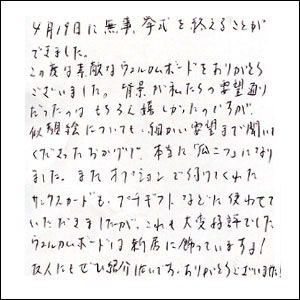 4月19日に無事、挙式を終えることが
できました。
この度は素敵なウェルカムボードをありがとう
ございました。背景が私たちの要望通り
だったのはもちろん嬉しかったのですが、
似顔絵についても、細かい要望まで聞いて
くださったおかげで、本当に「瓜二つ」になり
ました。また オプションで付けてくれた
サンクスカードも、プチギフトなどに使わせて
いただきましたが、これも大変好評でした
ウェルカムボードは新居に飾っていますよ!
友人にもぜひ紹介したいです。ありがとうございました!